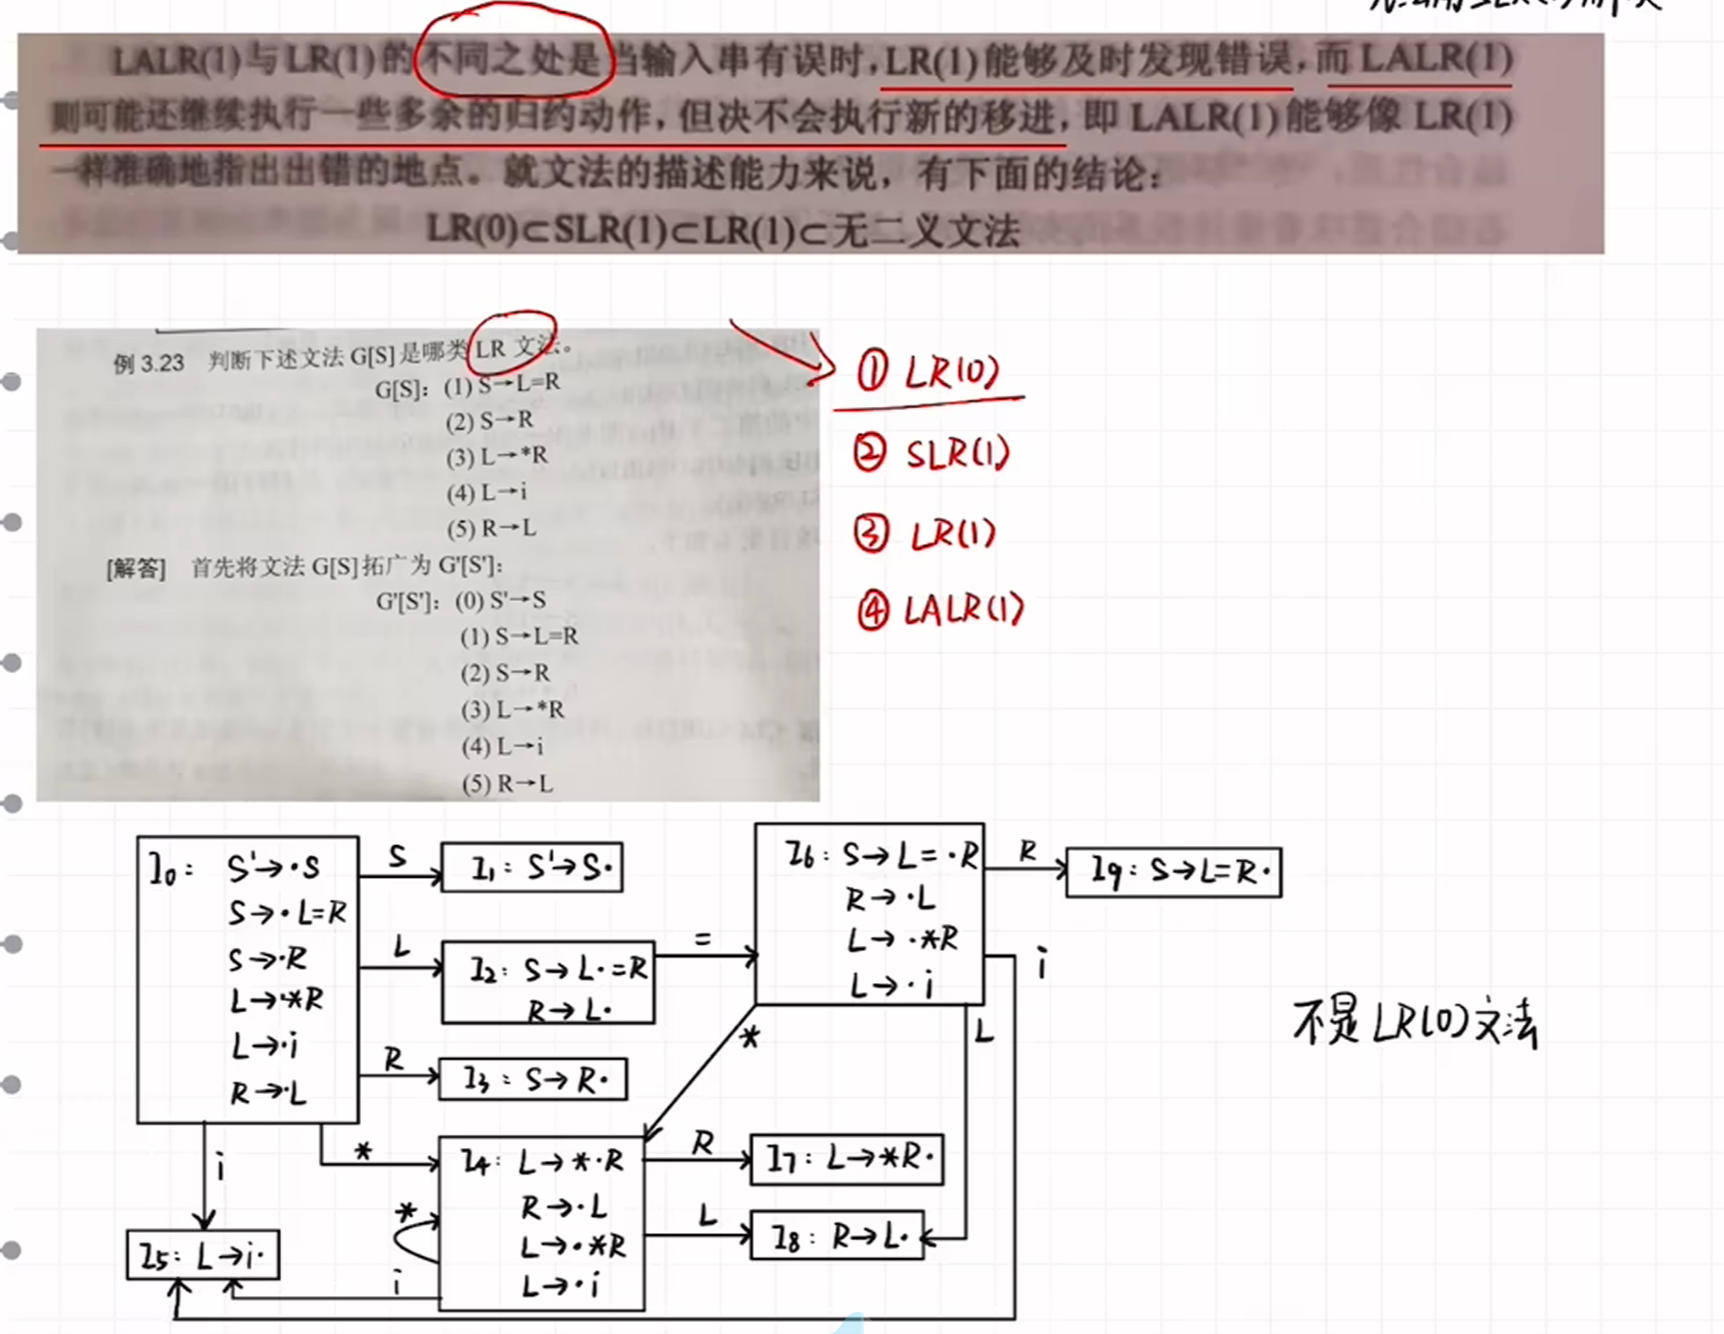 LALR(1)与LR(1)的不同之处是当输入串有误时,LR(1)能够及时发现错误,而LALR(1)
则可能还继续执行一些多余的归约动作,但决不会执行新的移进,即LALR(1)能够像LR(1)
一样准确地指出出错的地点。就文法的描述能力来说,有下面的结论:
LR(0)⊂SLR(1)⊂LR(1)⊂无二义文法
例 3.23 判断下述文法 G[S]是哪类 LR 文法。
G[S]: (1) S→L=R
(2) S→R
(3) L→*R
(4) L→i
(5) R→L
[解答] 首先将文法 G[S]拓广为 G'[S']:
G'[S']: (0) S'→S
(1) S→L=R
(2) S→R
(3) L→*R
(4) L→i
(5) R→L
① LR(0)
② SLR(1)
③ LR(1)
④ LALR(1)
I0: S'→·S
S→·L=R
S→·R
L→·*R
L→·i
R→·L
S
I1: S'→S·
L
I2: S→L·=R
R→L·
=
R
I3: S→R·
I6: S→L=·R
R→·L
L→·*R
L→·i
R
I9: S→L=R·
i
L
*
不是LR(0)文法
i
*
I4: L→*·R
R→·L
L→·*R
L→·i
R
I7: L→*R·
L
I8: R→L·
*
i
I5: L→i·